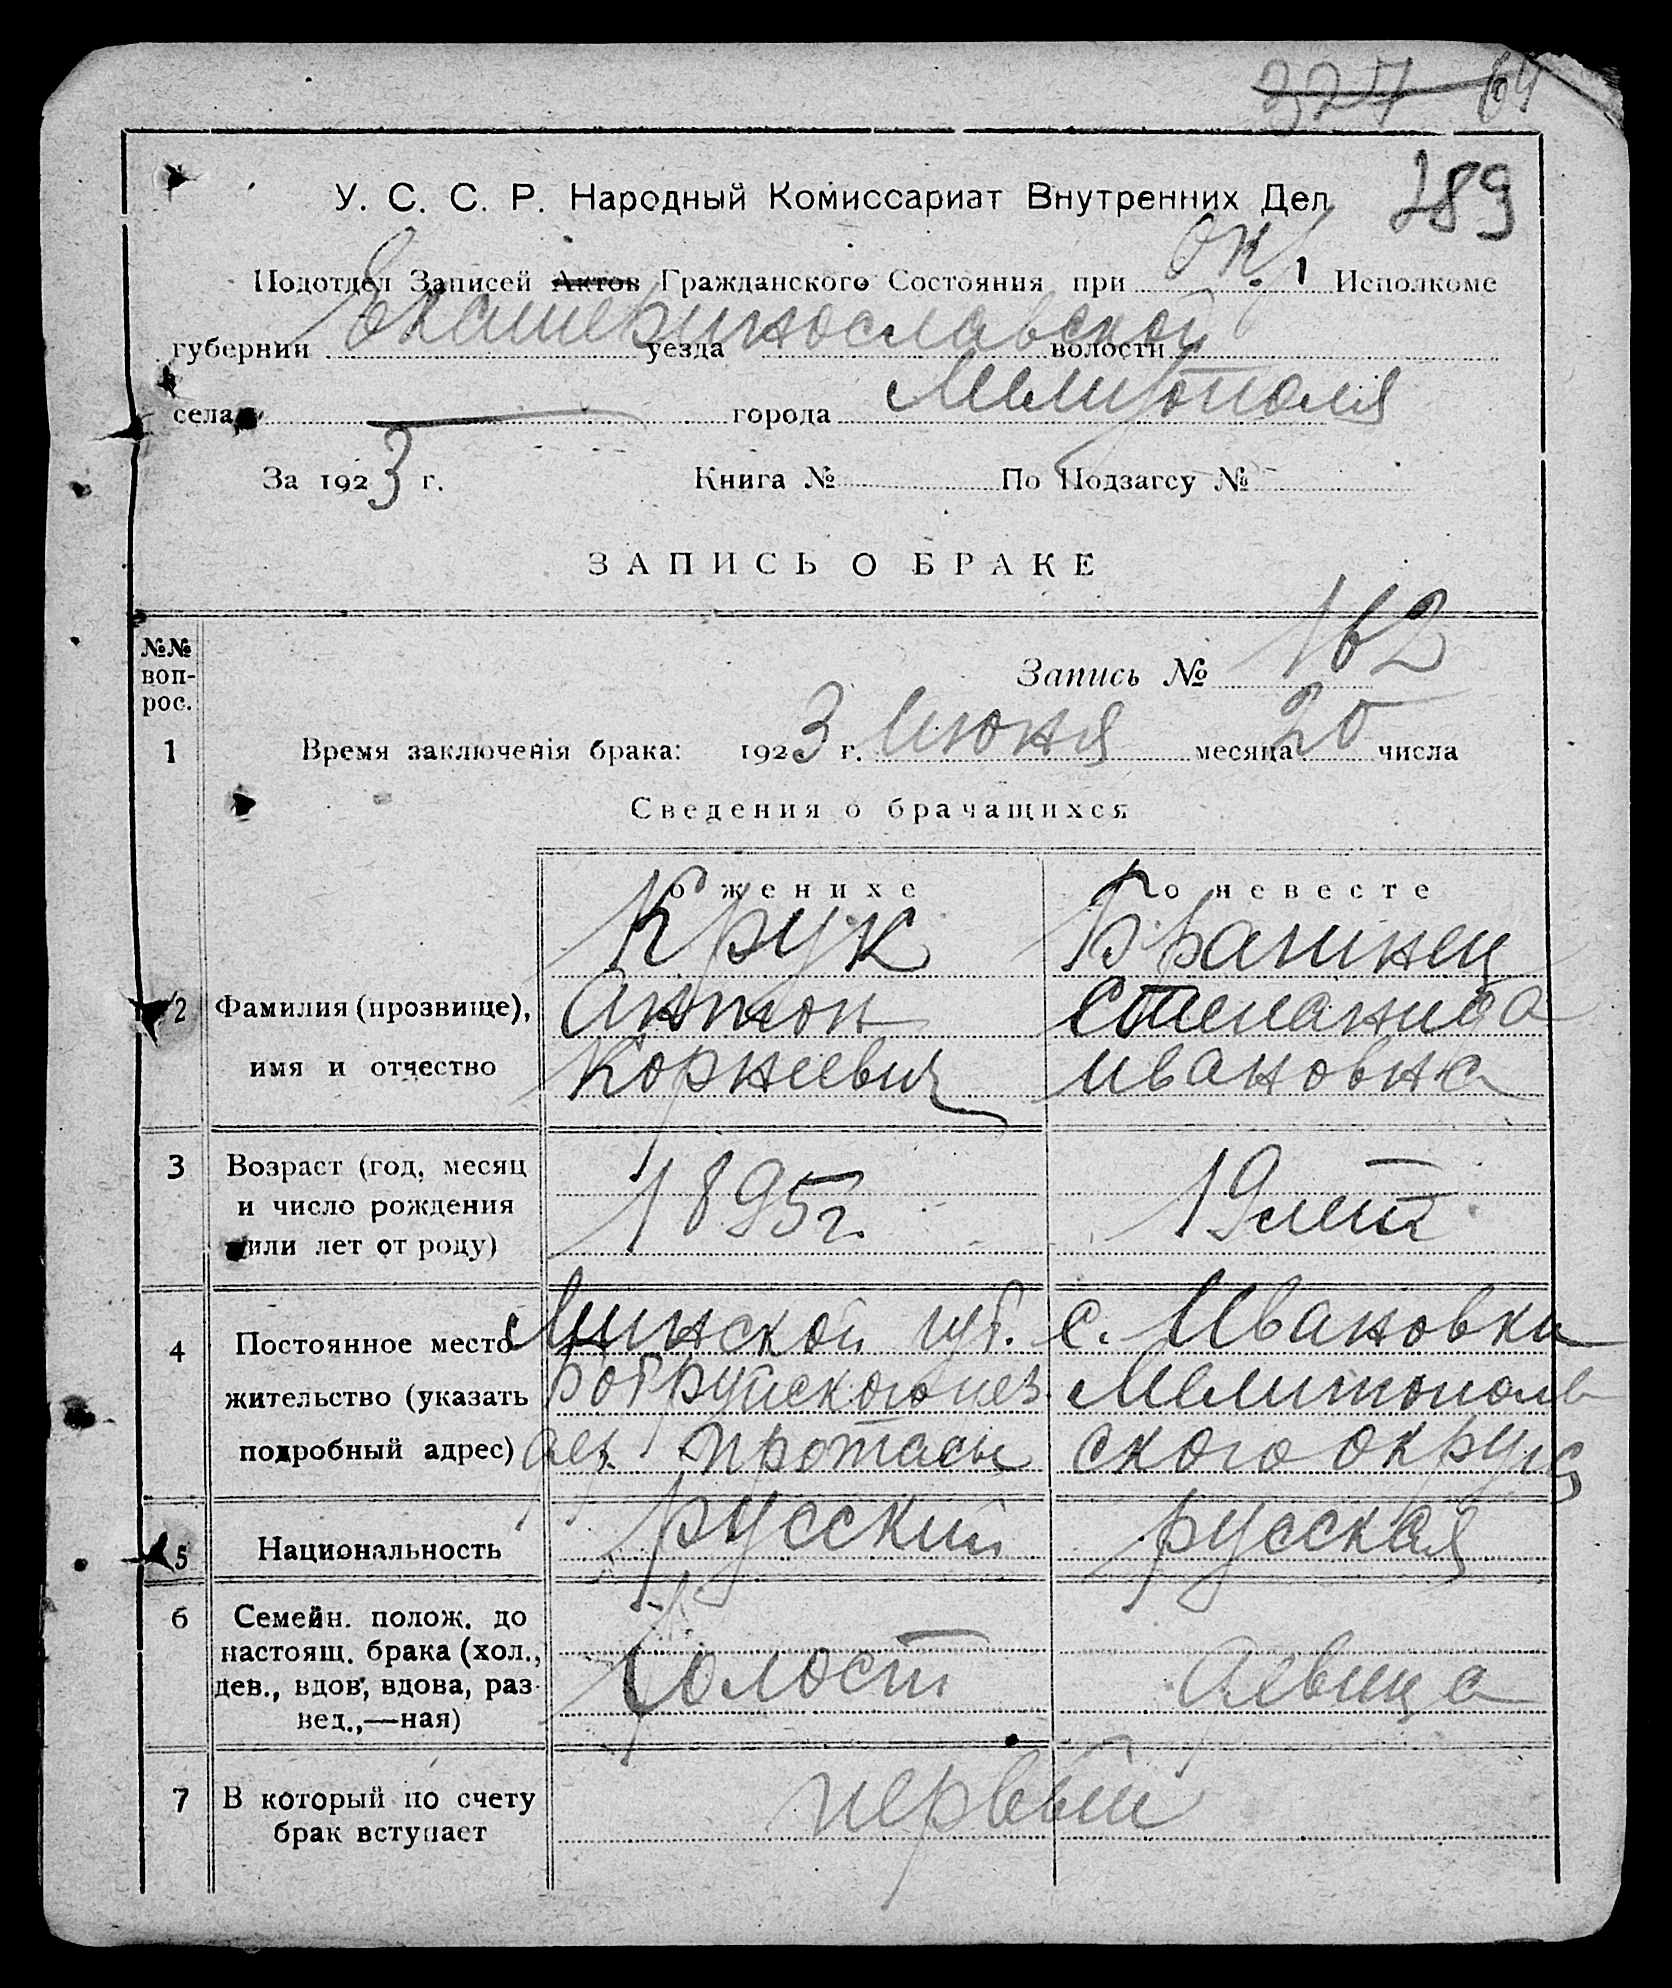 327 64
289
У. С. С. Р. Народный Комиссариат Внутренних Дел
Подотдел Записей Актов Гражданского Состояния при Окр. 1 Исполкоме
губернии Екатеринославской уезда волости
села — города Мелитополя
За 1923 г. Книга № По Подзагсу №
ЗАПИСЬ О БРАКЕ
№№ воп-рос.
Запись № 162
1 Время заключенія брака: 1923 г. Июня месяца 20 числа
Сведения о брачащихся
о женихе о невесте
Крук Братинец
2 Фамилия (прозвище), Антон Степанида
имя и отчество Корнеевич Ивановна
3 Возраст (год, месяц
и число рождения 1895 г. 19 лет
или лет от роду)
4 Постоянное место Минской губ. с. Ивановки
жительство (указать Бобруйского уез Мелитополь
подробный адрес) дер. Протасы ского округа
5 Национальность русский русская
6 Семейн. полож. до
настоящ. брака (хол.,
дев., вдов, вдова, раз- Холост девица
вед.,—ная)
7 В который по счету первый
брак вступает